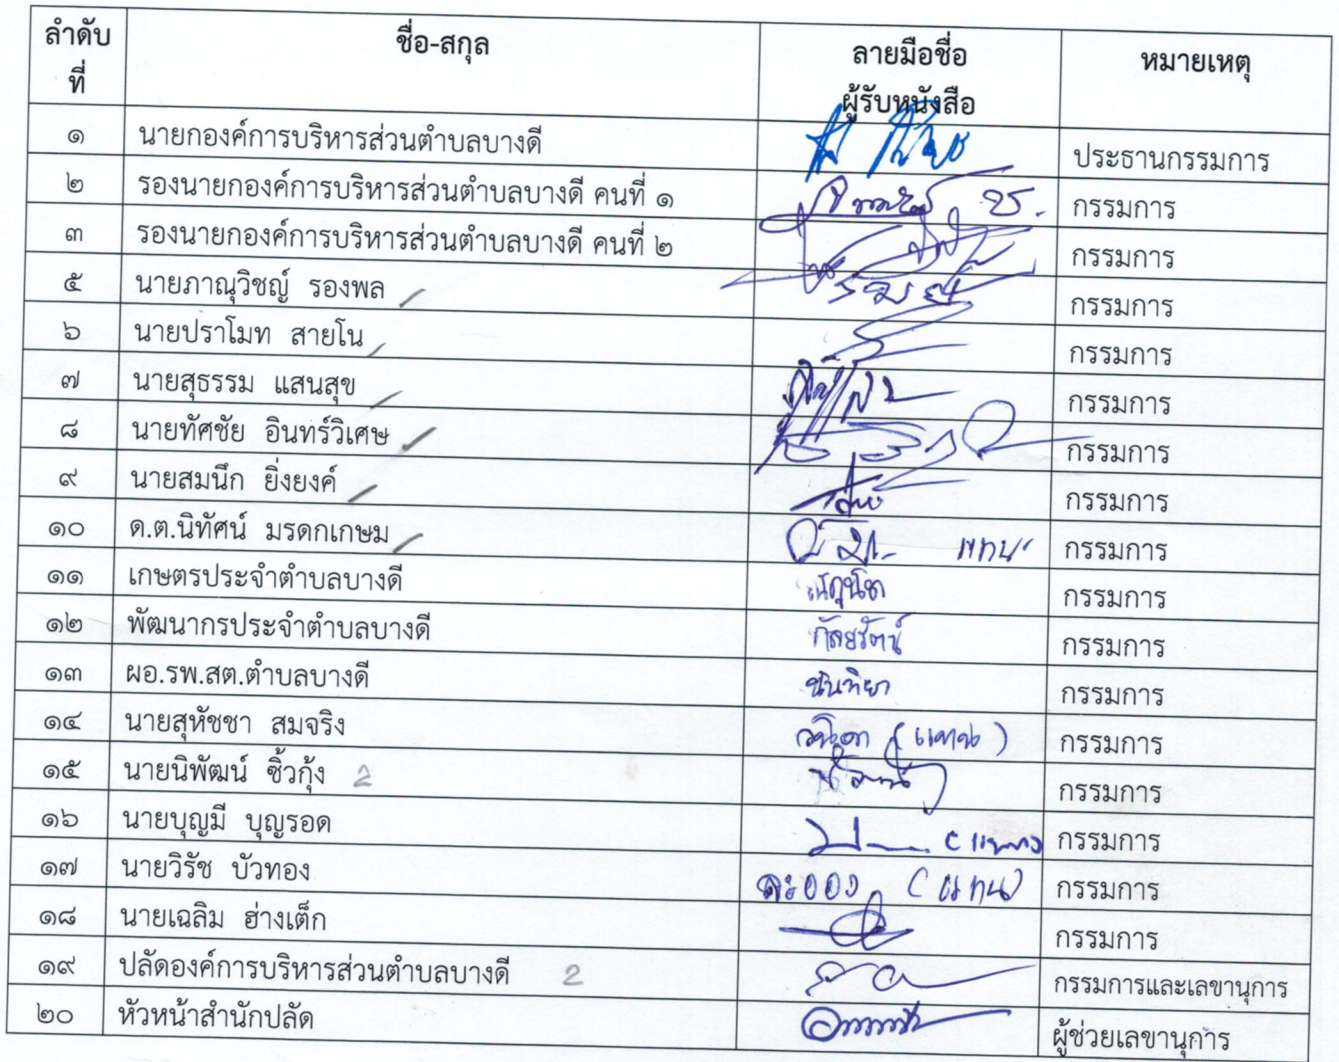 ลำดับ ชื่อ-สกุล ลายมือชื่อ หมายเหตุ
ที่ ผู้รับหนังสือ
๑ นายกองค์การบริหารส่วนตำบลบางดี ประธานกรรมการ
๒ รองนายกองค์การบริหารส่วนตำบลบางดี คนที่ ๑ กรรมการ
๓ รองนายกองค์การบริหารส่วนตำบลบางดี คนที่ ๒ กรรมการ
๕ นายภาณุวิชญ์ รองพล กรรมการ
๖ นายปราโมท สายโน กรรมการ
๗ นายสุธรรม แสนสุข กรรมการ
๘ นายทัศชัย อินทร์วิเศษ กรรมการ
๙ นายสมนึก ยิ่งยงค์ กรรมการ
๑๐ ด.ต.นิทัศน์ มรดกเกษม แทน กรรมการ
๑๑ เกษตรประจำตำบลบางดี กรรมการ
๑๒ พัฒนากรประจำตำบลบางดี กรรมการ
๑๓ ผอ.รพ.สต.ตำบลบางดี นันทิยา กรรมการ
๑๔ นายสุหัชชา สมจริง (แทน) กรรมการ
๑๕ นายนิพัฒน์ ซิ้วกุ้ง 2 กรรมการ
๑๖ นายบุญมี บุญรอด กรรมการ
๑๗ นายวิรัช บัวทอง ละออง (แทน) กรรมการ
๑๘ นายเฉลิม ฮ่างเต็ก กรรมการ
๑๙ ปลัดองค์การบริหารส่วนตำบลบางดี 2 กรรมการและเลขานุการ
๒๐ หัวหน้าสำนักปลัด ผู้ช่วยเลขานุการ